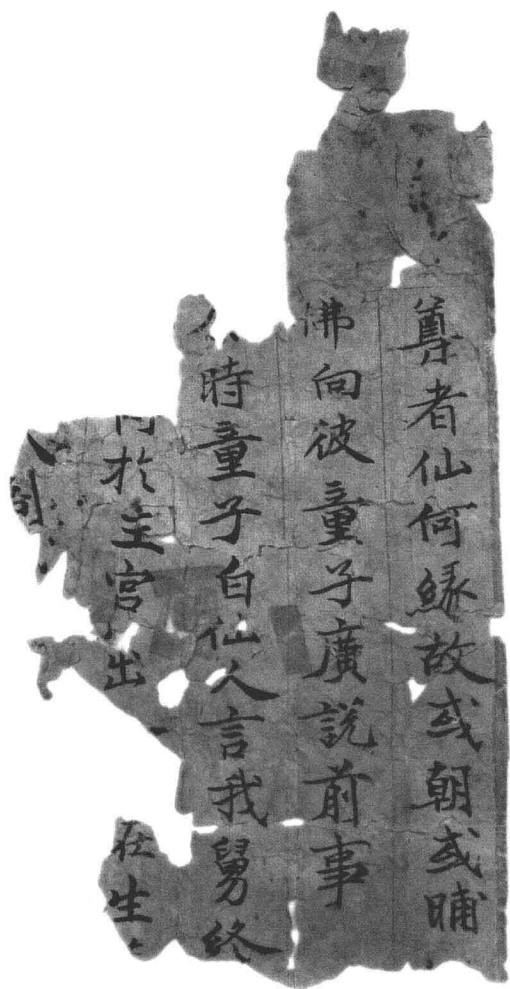 尊者仙何緣故或朝或晡
佛向彼童子廣說前事
時童子白仙人言我舅終
於主宮出在生